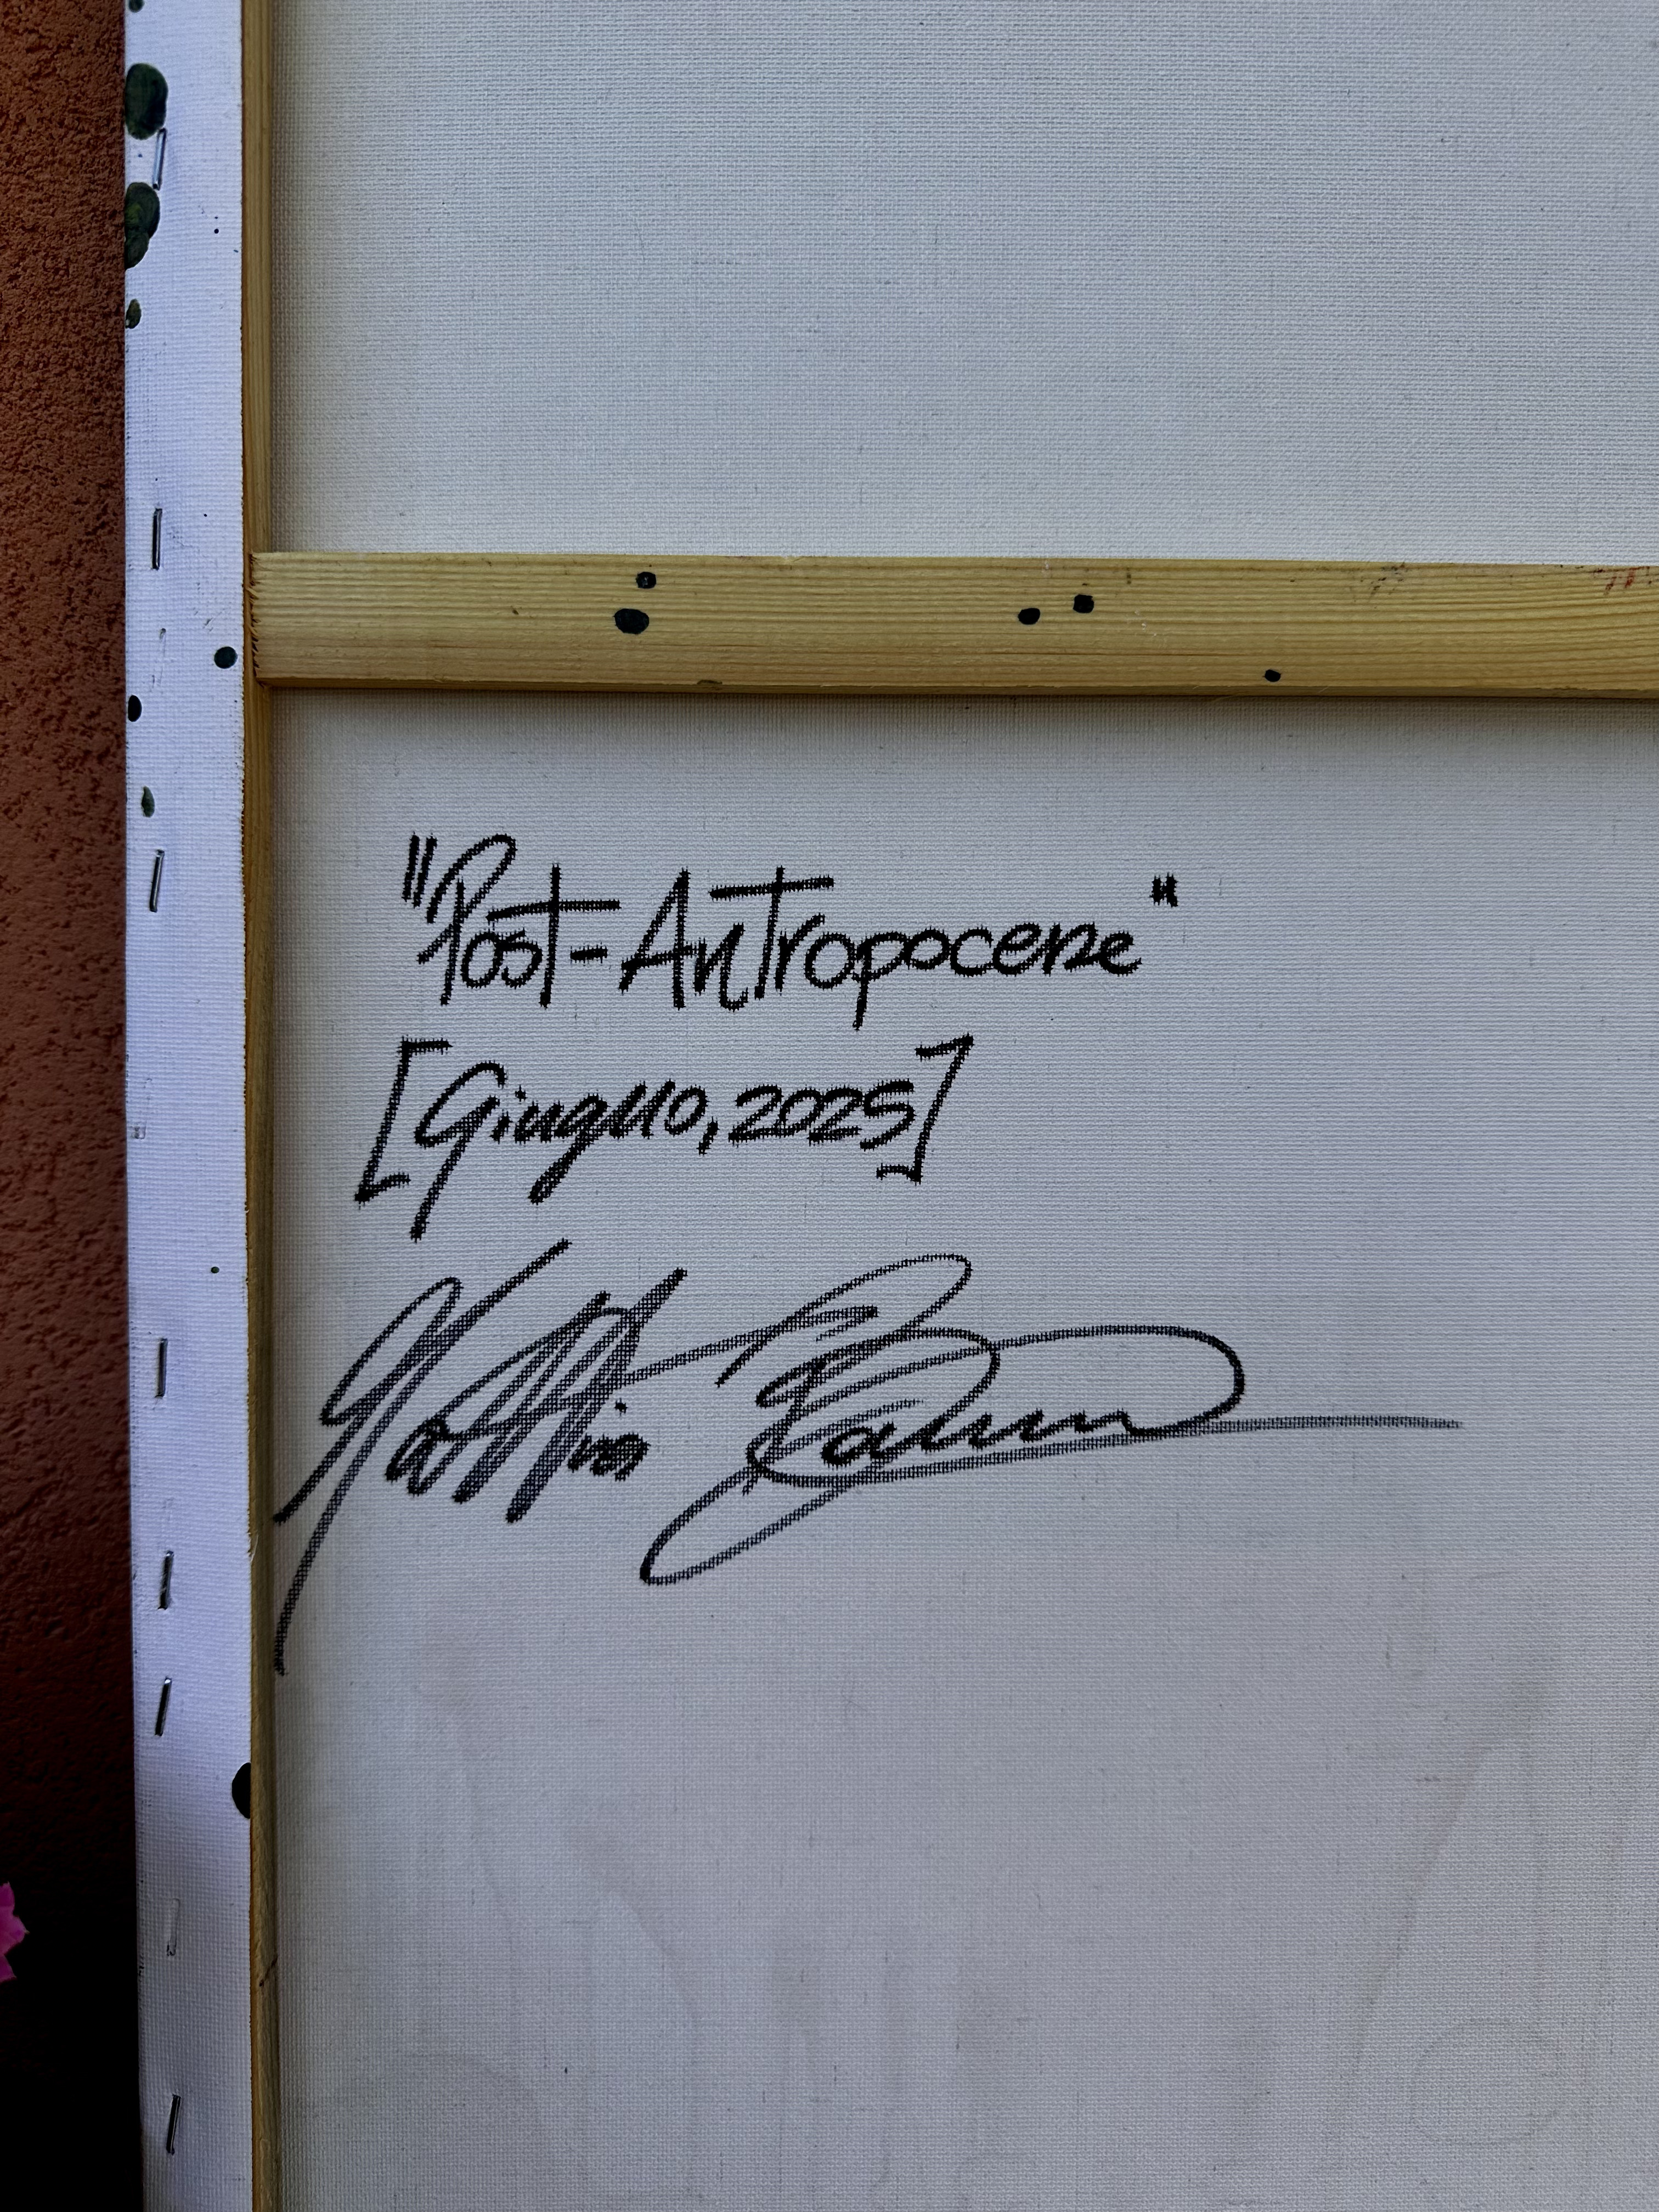 "Post-Antropocene"
[Giugno, 2025]